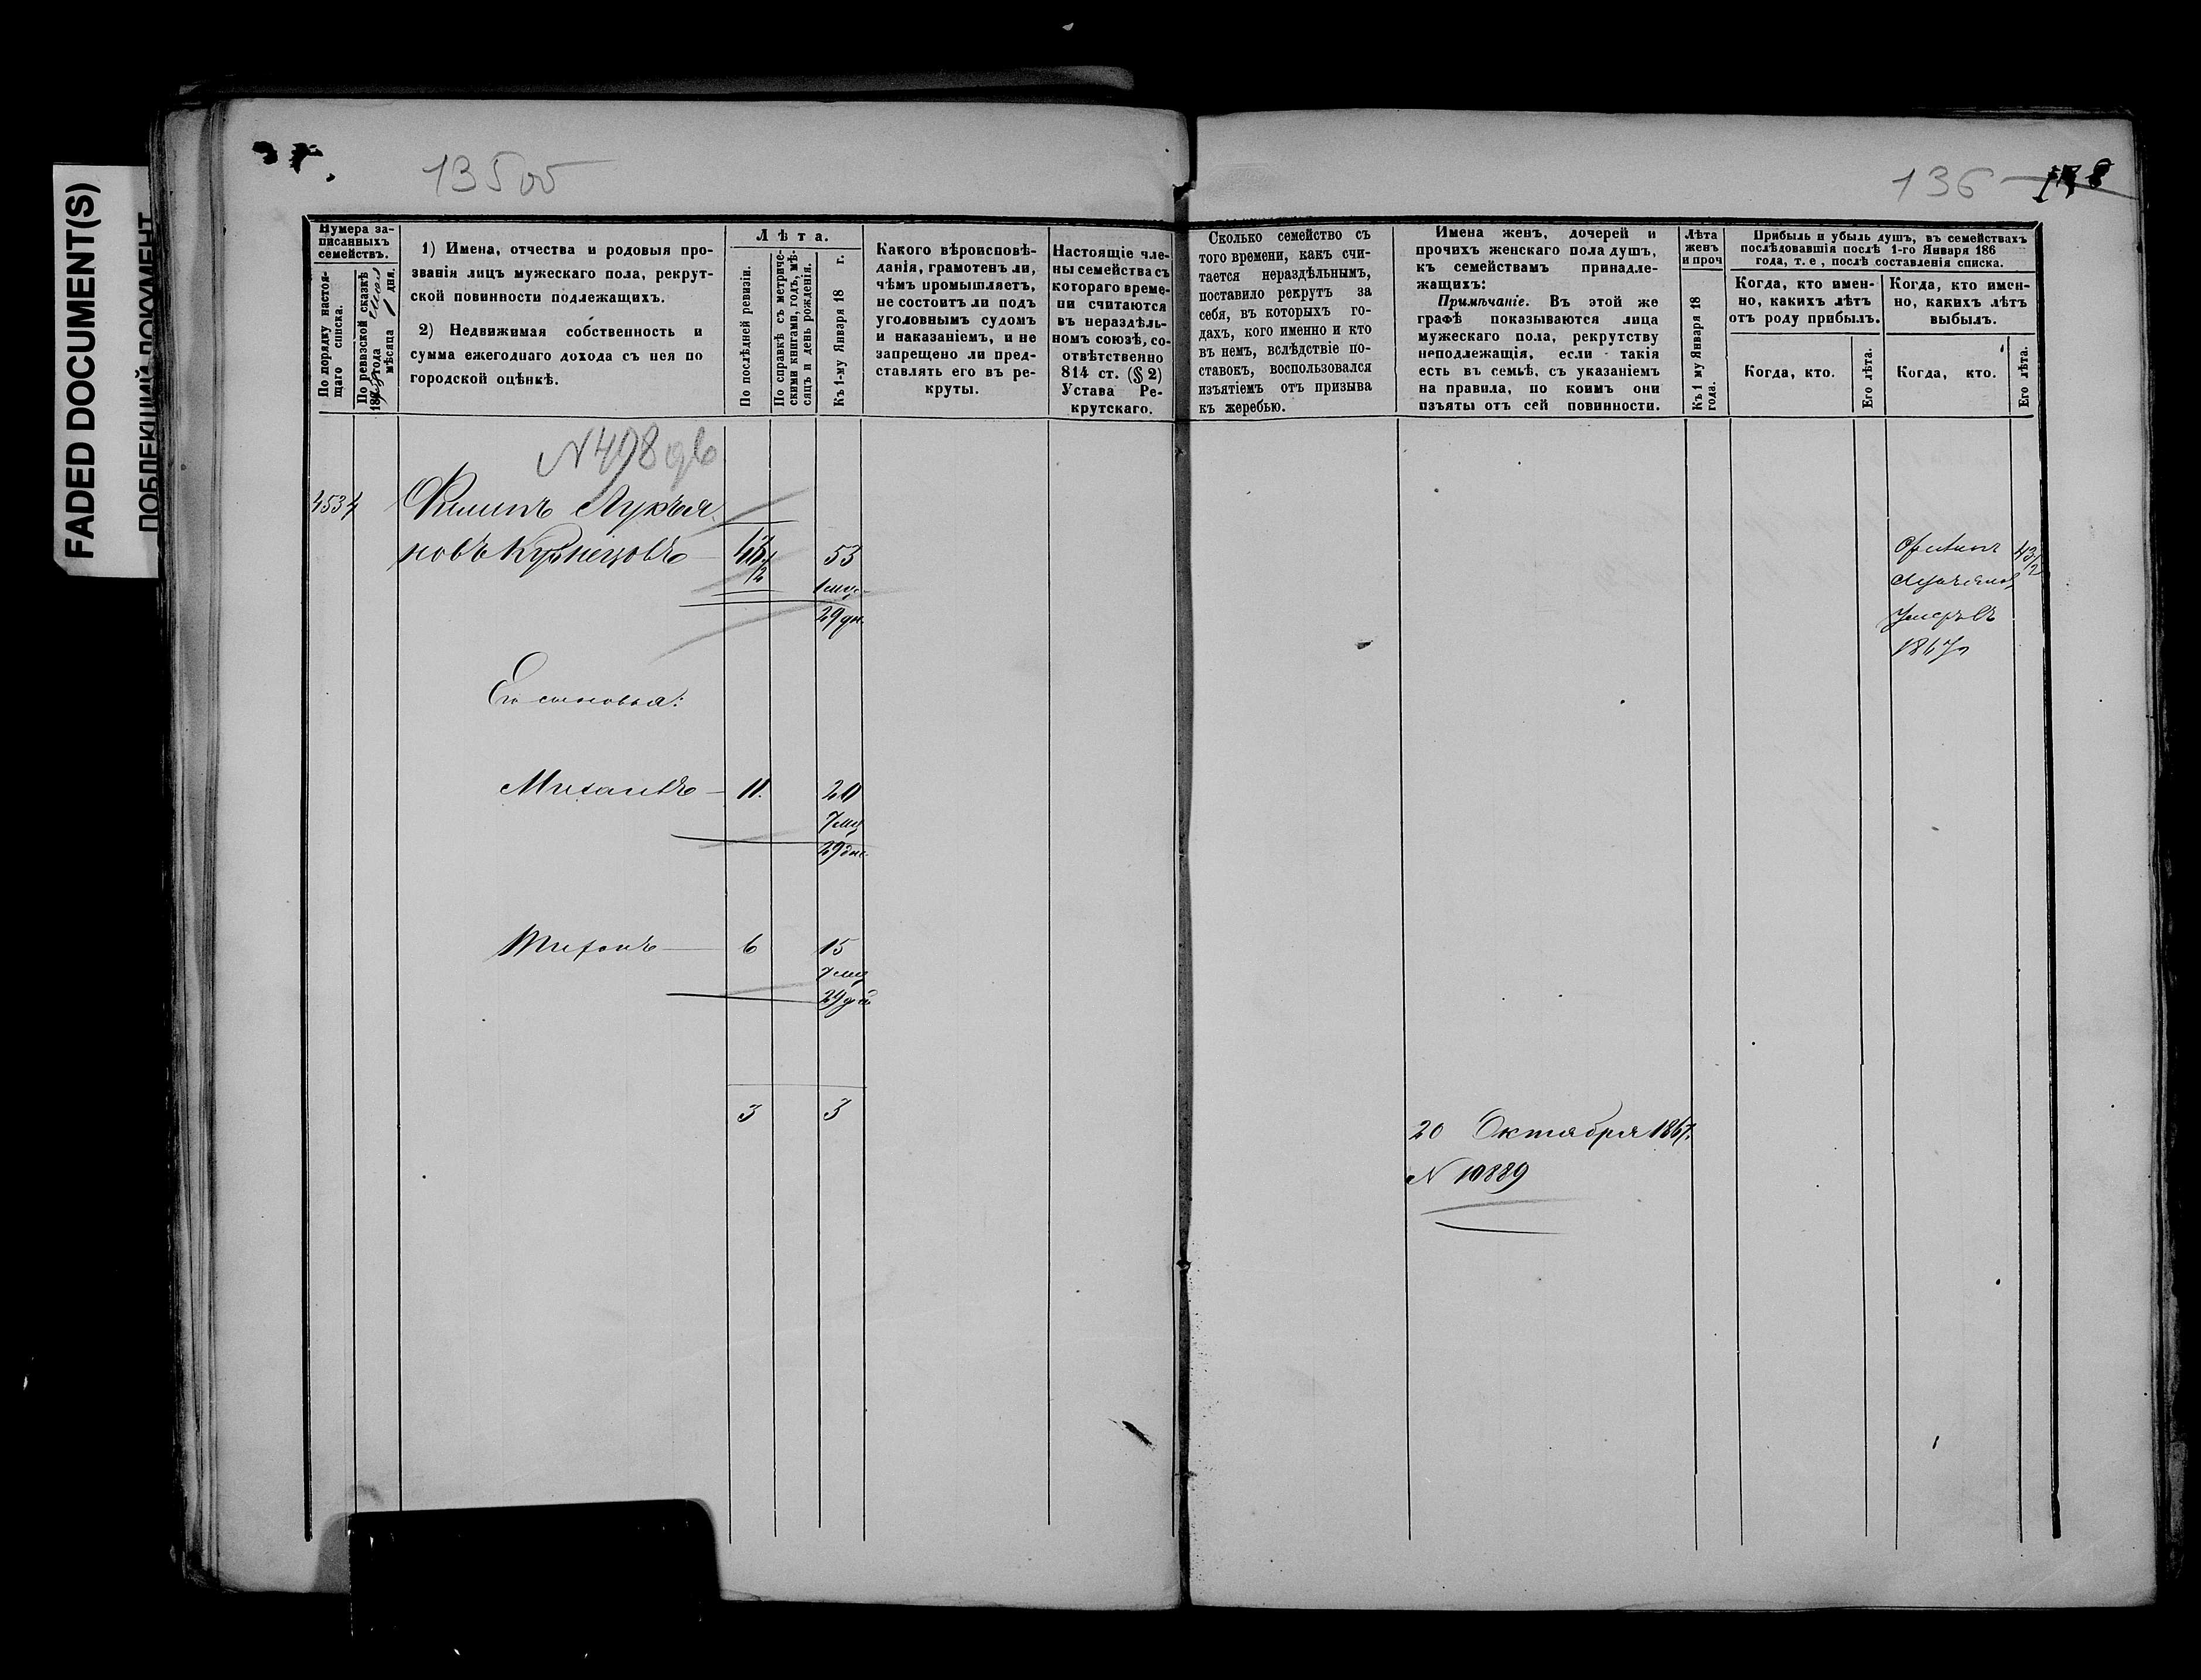 FADED DOCUMENT(S)
135 об
136
178
Нумера за-
писанныхъ
семействъ.
По порядку настоя-
щаго списка.
По ревизской сказкѣ
185 года
мѣсяца дня.
1) Имена, отчества и родовыя про-
званія лицъ мужескаго пола, рекрут-
ской повинности подлежащихъ.
2) Недвижимая собственность и
сумма ежегоднаго дохода съ нея по
городской оцѣнкѣ.
Лѣта.
По послѣдней ревизіи.
По справкѣ съ метриче-
скими книгами, годъ, мѣ-
сяцъ и день рожденія.
Къ 1-му Января 18 г.
Какого вѣроисповѣ-
данія, грамотенъ ли,
чѣмъ промышляетъ,
не состоитъ ли подъ
уголовнымъ судомъ
и наказаніемъ, и не
запрещено ли пред-
ставлять его въ ре-
круты.
Настоящіе чле-
ны семейства съ
котораго време-
ни считаются
въ нераздѣль-
номъ союзѣ, со-
отвѣтственно
814 ст. (§ 2)
Устава Ре-
крутскаго.
Сколько семейство съ
того времени, какъ счи-
тается нераздѣльнымъ,
поставило рекрутъ за
себя, въ которыхъ го-
дахъ, кого именно и кто
въ немъ, вслѣдствіе по-
ставокъ, воспользовался
изъятіемъ отъ призыва
къ жеребью.
Имена женъ, дочерей и
прочихъ женскаго пола душъ,
къ семействамъ принадле-
жащихъ:
Примѣчаніе. Въ этой же
графѣ показываются лица
мужескаго пола, рекрутству
неподлежащія, если такія
есть въ семьѣ, съ указаніемъ
на правила, по коимъ они
изъяты отъ сей повинности.
Лѣта
женъ
и проч
Къ 1 му Января 18
года.
Прибыль и убыль душъ, въ семействахъ
послѣдовавшія послѣ 1-го Января 186
года, т. е, послѣ составленія списка.
Когда, кто имен-
но, какихъ лѣтъ
отъ роду прибылъ.
Когда, кто имен-
но, какихъ лѣтъ
выбылъ.
Когда, кто.
Его лѣта.
Когда, кто.
Его лѣта.
N 498
4534 Филипъ Лукья
новъ Кузнецовъ 53
1 мц
29 дн.
Филипъ
Лукьяновъ
умеръ въ
1867
Его сыновья:
Михаилъ 11. 20
7 мц
29 дн.
Тихонъ 6 15
7 мц
29 дн
3 3
20 Октября 1867.
N 10889